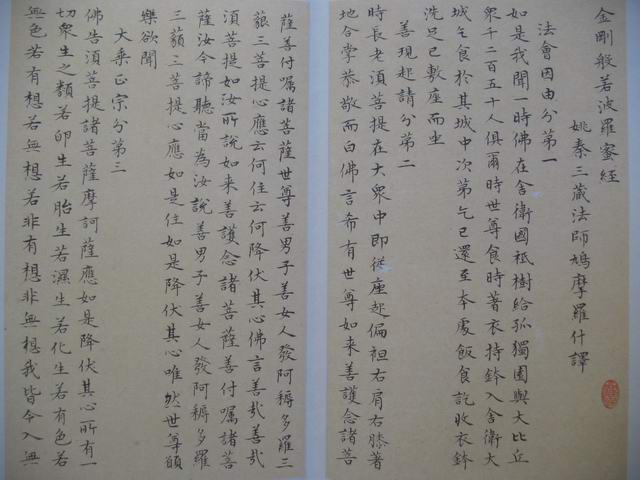 金剛般若波羅蜜經
姚秦三藏法師鳩摩羅什譯
法會因由分第一
如是我聞一時佛在舍衛國祇樹給孤獨園與大比丘
衆千二百五十人俱爾時世尊食時著衣持鉢入舍衛大
城乞食於其城中次第乞已還至本處飯食訖收衣鉢
洗足已敷座而坐
善現起請分第二
時長老須菩提在大衆中即從座起偏袒右肩右膝著
地合掌恭敬而白佛言希有世尊如来善護念諸菩
薩善付嘱諸菩薩世尊善男子善女人發阿耨多羅三
藐三菩提心應云何住云何降伏其心佛言善哉善哉
須菩提如汝所說如来善護念諸菩薩善付嘱諸菩
薩汝今諦聽當為汝說善男子善女人發阿耨多羅
三藐三菩提心應如是住如是降伏其心唯然世尊願
樂欲聞
大乘正宗分第三
佛告須菩提諸菩薩摩訶薩應如是降伏其心所有一
切衆生之類若卵生若胎生若濕生若化生若有色若
無色若有想若無想若非有想非無想我皆令入無